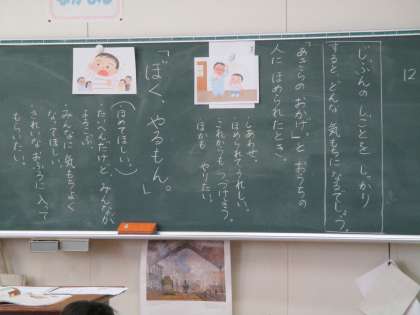 12
じぶんの しごとを しっかり
すると、どんな 気もちになるでしょう。
「あきらの おかげ」と おうちの
人に ほめられたとき。
・しあわせ。
・ほめられてうれしい。
・これからも つづけよう。
・ほかも やりたい。
「ぼく、やるもん。」
(ほめてほしい。)
・たいへんだけど、みんなが
よろこぶ。
・みんなに 気もちよく
なってほしい。
・きれいな おふろに 入って
もらいたい。